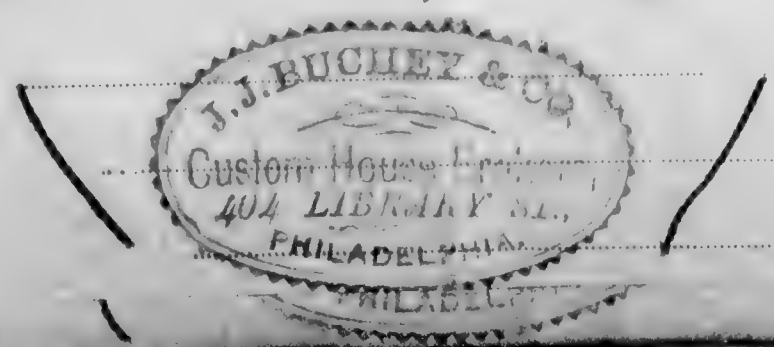 J. J. BUCHEY & Co.
Custom House
404 LIBRARY ST.,
PHILADELPHIA
PHILADELPHI